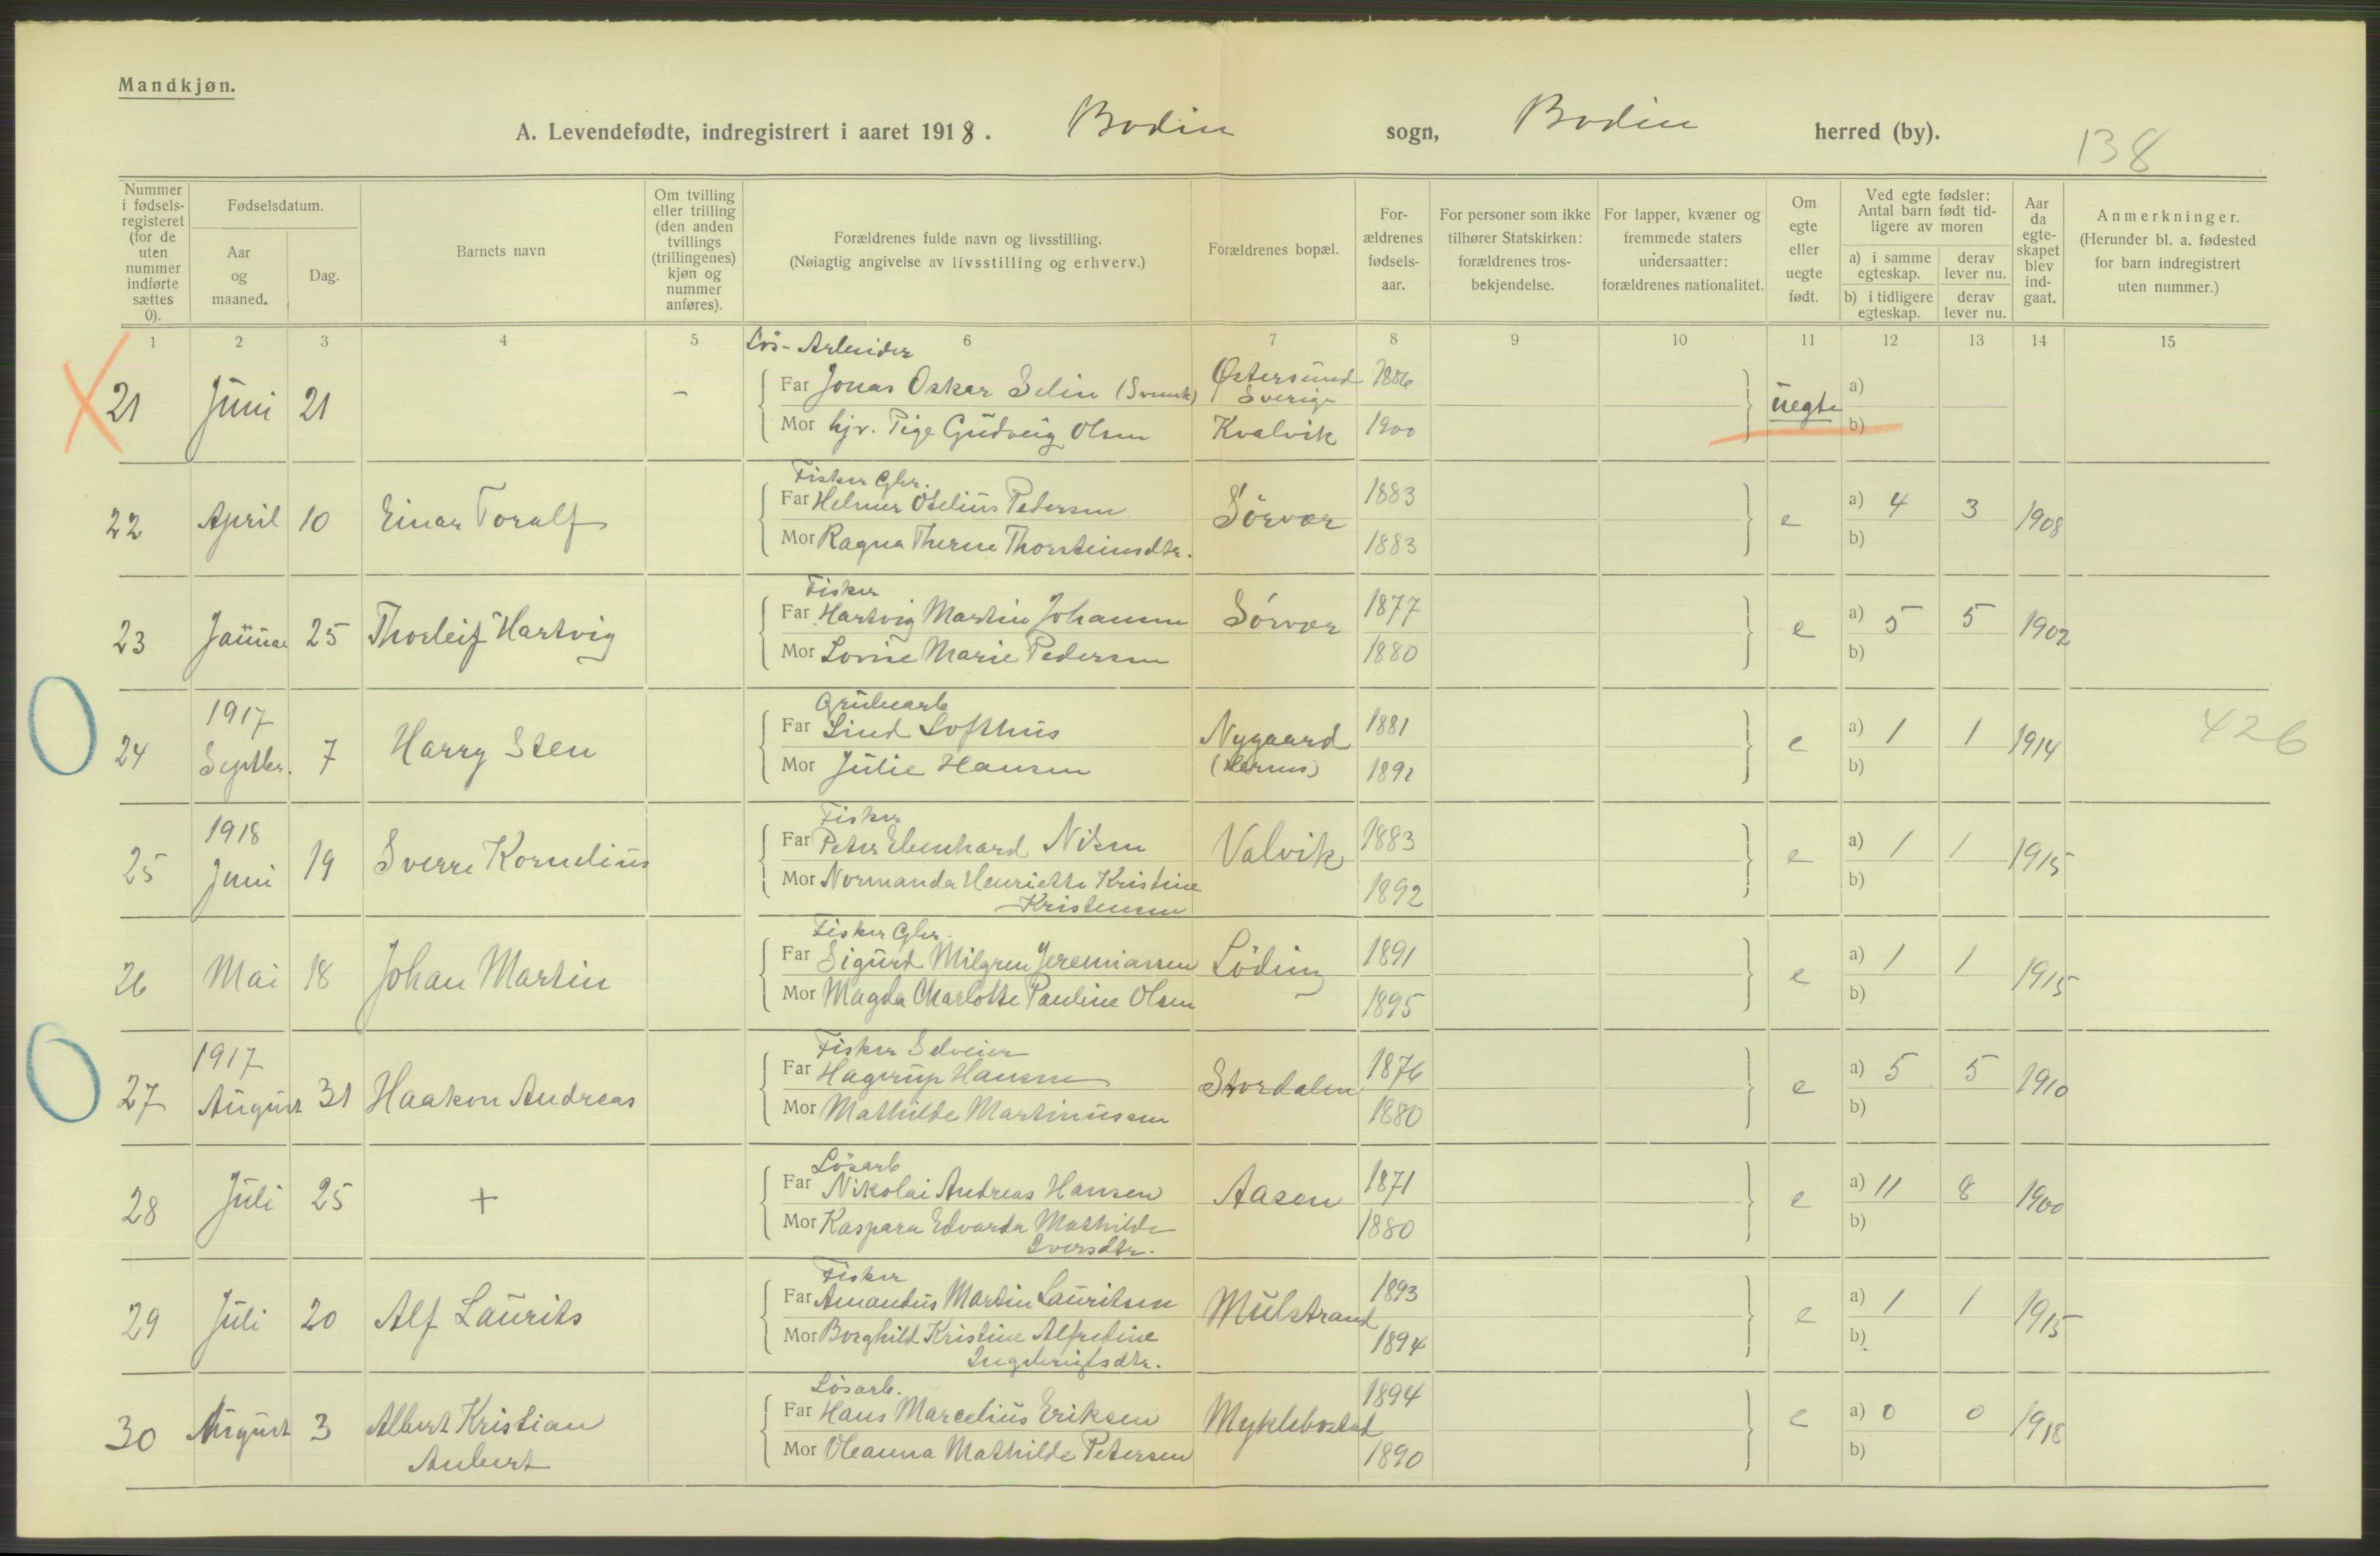 Mandkjøn.
A. Levendefødte, indregistrert i aaret 1918. Bodin sogn, Bodin herred (by).
138
Nummer i fødsels-registeret (for de uten nummer indførte sættes 0).
Fødselsdatum.
Aar og maaned.
Dag.
Barnets navn
Om tvilling eller trilling (den anden tvillings (trillingenes) kjøn og nummer anføres).
Forældrenes fulde navn og livsstilling.
(Nøiagtig angivelse av livsstilling og erhverv.)
Forældrenes bopæl.
For-ældrenes fødsels-aar.
For personer som ikke tilhører Statskirken: forældrenes tros-bekjendelse.
For lapper, kvæner og fremmede staters undersaatter: forældrenes nationalitet.
Om egte eller uegte født.
Ved egte fødsler: Antal barn født tid-ligere av moren
a) i samme egteskap. derav lever nu.
b) i tidligere egteskap. derav lever nu.
Aar da egte-skapet blev ind-gaat.
Anmerkninger.
(Herunder bl. a. fødested for barn indregistrert uten nummer.)
1 2 3 4 5 6 7 8 9 10 11 12 13 14 15
Løs-Arbeider
21 Juni 21 - Far Jonas Oskar Selin (Svensk) Østersund Sverige 1886 uegte a)
Mor hjv. Pige Gudveig Olsen Kvalvik 1900 b)
Fisker Gbr.
22 April 10 Einar Toralf Far Helmer Otelius Pedersen Sörvær 1883 e a) 4 3 1908
Mor Ragna Therese Thorsteinsdtr. 1883 b)
Fisker
23 Januar 25 Thorleif Hartvig Far Hartvig Martin Johansen Sörvær 1877 e a) 5 5 1902
Mor Lovise Marie Pedersen 1880 b)
Grubearb
24 1917 Septbr. 7 Harry Sten Far Lind Lofthus Nygaard 1881 e a) 1 1 1914 426
Mor Julie Hansen 1892 b)
Fisker
25 1918 Juni 19 Sverre Kornelius Far Peter Ebenhard Nilsen Valvik 1883 e a) 1 1 1915
Mor Normanda Henriette Kristine 1892 b)
Kristensen
Fisker Gbr.
26 Mai 18 Johan Martin Far Sigurd Milgren Jeremiassen Löding 1891 e a) 1 1 1915
Mor Magda Charlotte Pauline Olsen 1895 b)
Fisker Selveier
27 1917 August 31 Haakon Andreas Far Hagerup Hansen Stordalen 1876 e a) 5 5 1910
Mor Mathilde Martinussen 1880 b)
Lösarb
28 Juli 25 + Far Nikolai Andreas Hansen Aasen 1871 e a) 11 8 1900
Mor Kaspara Edvarda Mathilde 1880 b)
Iversdtr.
Fisker
29 Juli 20 Alf Laurits Far Amandus Martin Lauritsen Mulstrand 1893 e a) 1 1 1915
Mor Borghild Kristine Alfredine 1894 b)
Ingebrigtsdtr.
Lösarb.
30 August 3 Albert Kristian Far Hans Marcelius Eriksen Myklebostad 1894 e a) 0 0 1918
Anbert Mor Oleanna Mathilde Petersen 1890 b)